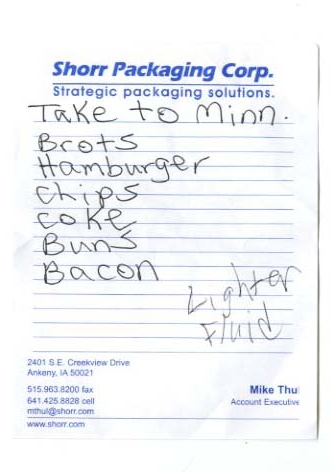 Shorr Packaging Corp.
Strategic packaging solutions.
Take to Minn.
Brots
Hamburger
chips
coke
Buns
Bacon
Lighter
Fluid
2401 S.E. Creekview Drive
Ankeny, IA 50021
515.963.8200 fax
641.425.8828 cell
mthul@shorr.com
www.shorr.com
Mike Thul
Account Executive